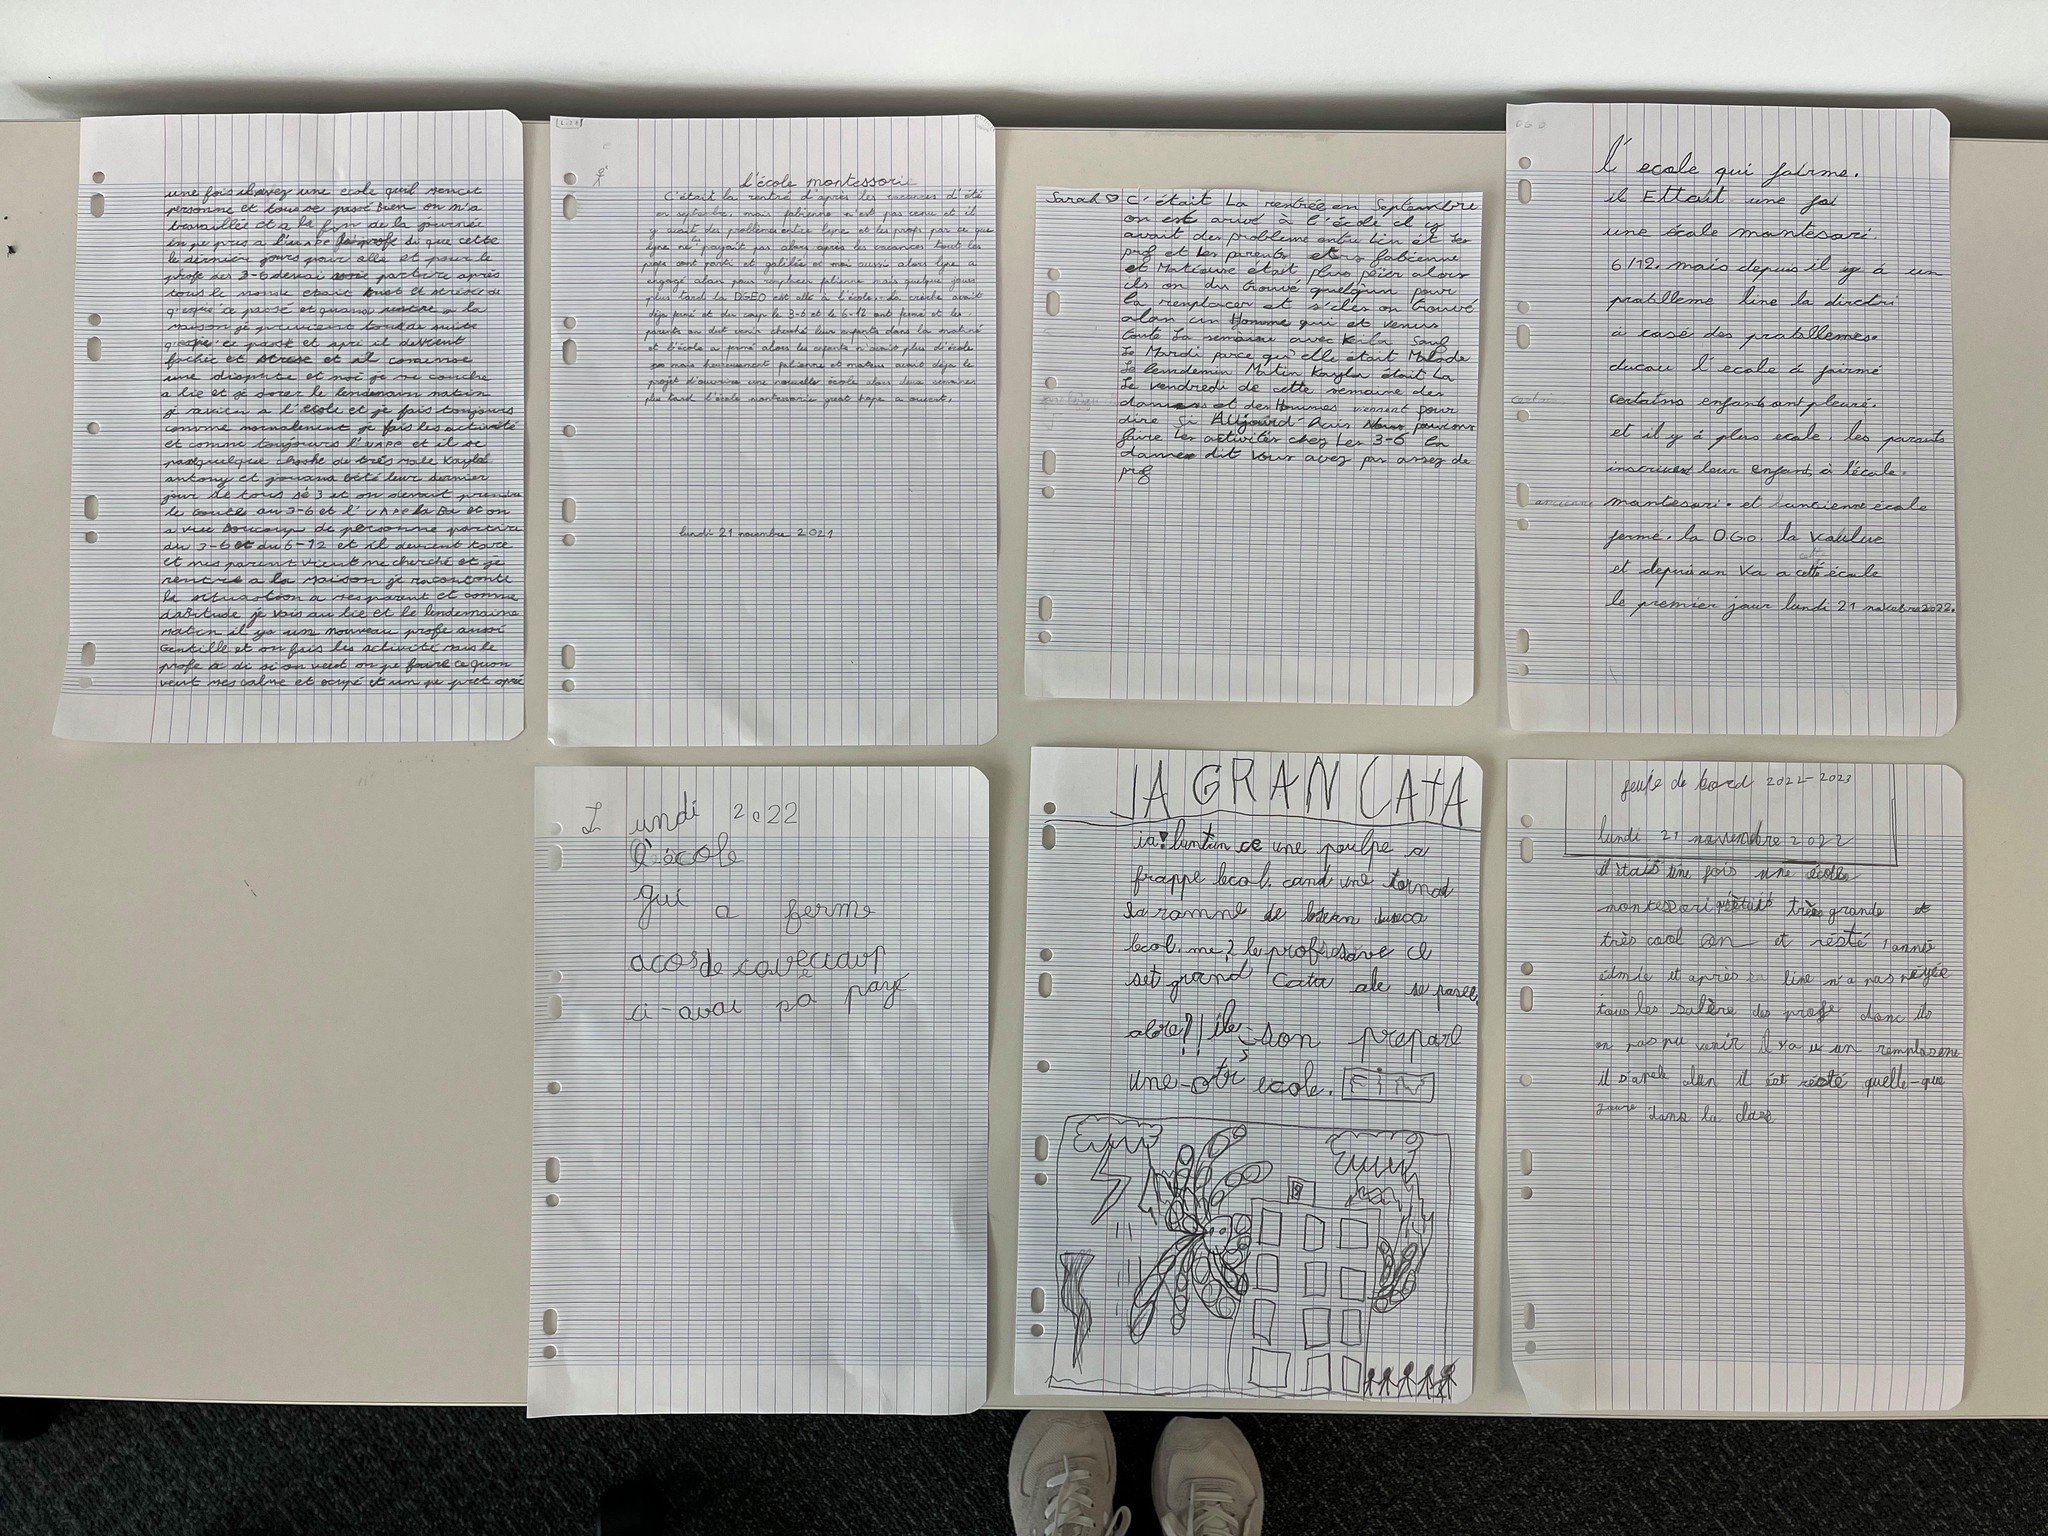 une fois il avez une école quil
personne et tous se passé bien on m'a
travaillés et a la fin de la journée
in pe prus a l'uape le profe di que cette
le dernier jours pour allé et pour le
profe des 3-6 demai partire après
tous le monde etait et stresse de
ce passé et quand rentre a la
maison je tout de suite
ce passé et apré il devient
fachée et stresse et il comence
une dispute et moi je me couche
a lie et je dorer le lendemain matin
je a l'école et je fais toujours
comme normalement je fais les activité
et comme toujours l'uape et il se
pas quelque choshe de très male Kayla
antony et jouana été leur dernier
jour de tous sé 3 et on devait prendre
le au 3-6 et l'UAPE la ba et on
a vue boucoup de personne partire
du 3-6 et du 6-12 et il devient tare
et mes parent vient me cherché et je
rentre a la maison je raconte
la situastion a mes parent et comme
dabitude je vais au lie et le lendemaine
matin il ya un nouveau profe aussi
Gentille et on fais les activité mais le
profe a di si on veut on pe faire ce quon
veut mes calme et ocupé et un pe pret apré
l'école montessorie
C'était la rentré d'après les vacances d'été
en septembre, mais fabienne n'est pas venu et il
y avait des problèmes entre lyne et les profs par ce que
lyne ne payait pas alors après les vacances tout les
profs sont parti et galilée et moi aussi alors lyne a
engagé alan pour remplacer fabienne mais quelque jours
plus tard la DGEO est allé à l'école. La crèche avait
déja fermé et du coup le 3-6 et le 6-12 ont fermé et les
parents on dut venir cherché leur enfants dans la matiné
et l'école a fermé alors les enfants n'avais plus d'école
mais heureusement fabienne et mateus avait déja le
projet d'ouvrire une nouvelle école alors deux semaines
plus tard l'école montessorie great hope a ouvert.
lundi 21 novembre 2021
Sarah ♡ C'était La rentrée en Septembre
on est arivé à l'école il y
avait des probleme entre Lin et les
prof et les parents et fabienne
et Matieuse était plus péier alors
ils on du trouvé quelqun pour
la remplacer et s'élés on trouvé
alan un Homme qui et venus
toute La semaine avec Kerla Sauf
Le Mardi parce qu'elle était Malade
Le lemdemin Matin Kayla était La
Le vendredi de cette semaine des
dames et des Hommes viennent pour
dire Si Aujourd'huis Nous pouvions
faire les activités chez Les 3-6 La
dame dit Vous avez pas assez de
prof
l'ecole qui fairme.
il Ettait une foi
une école montesari.
6/12. mais depuis il y à un
prablleme line la dirctri
à casé des prabllemes.
ducou l'ecole à fairmé
certains enfant ont pleuré.
et il y à plus ecole. les parants
inscrivent leur enfant à l'école.
montesari. et l'ancienne école
fermé. la D.G.O. la vauluc
et depui an va a cette école
le premier jour lundi 21 novembre 2022.
Lundi 2022
l'école
qui a ferme
acosde
ci-avai pa payé
LA GRAN CATA
ia! luntun ce une poulpe a
frappe lecol. cand une tornad
la ramne de
lecol. me, ? le
set grand Cata ale se pasee
alore?!! ile son preparé
une otr ecole. FIN
feuile de bord 2022-2023
lundi 21 novembre 2022
il était une fois une écolle
montessori très grande et
très cool on et resté 1 année
édmie et après line n'a pas péyée
tous les salère des profe donc ils
on pas pu venir il ya u un remplasene
il s'apele alan il est résté quelle-que
joure dans la clase